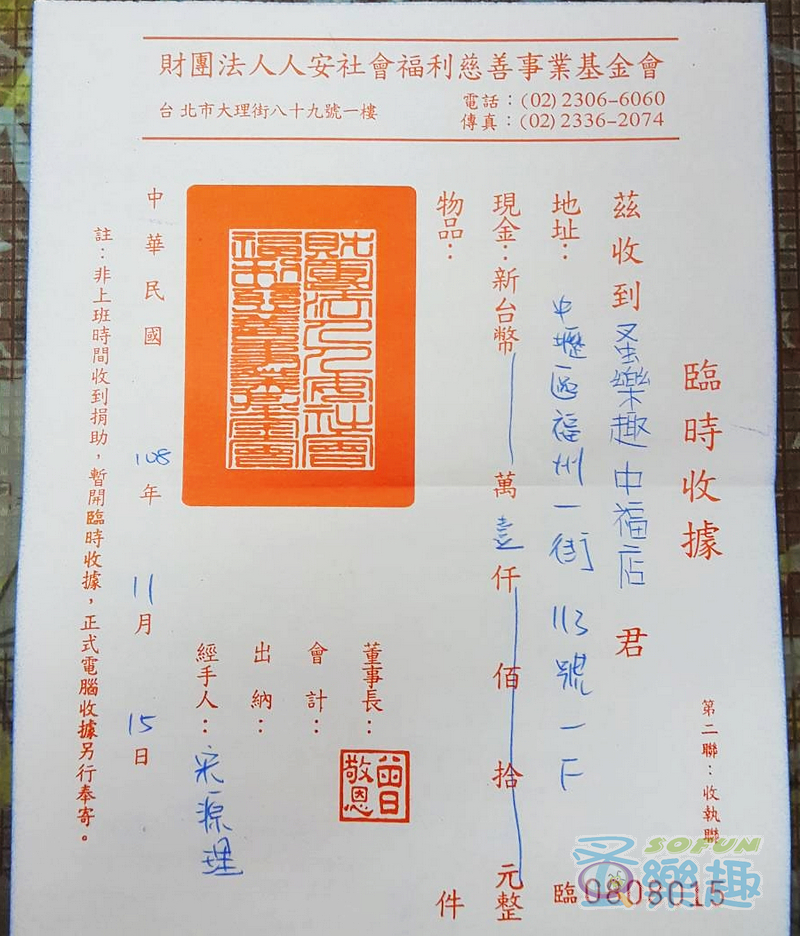 財團法人人安社會福利慈善事業基金會
台北市大理街八十九號一樓
電話：(02)2306-6060
傳真：(02)2336-2074
臨時收據
第二聯：收執聯
茲收到 圣樂趣中福店 君
地址：中壢區福州一街113號一F
現金：新台幣 萬 壹 仟 佰 拾 元整
物品： 件
財團法人人安社會福利慈善事業基金會
董事長：
曾敬恩
會計：
出納：
經手人：宋源理
中華民國 108 年 11 月 15 日
註：非上班時間收到捐助，暫開臨時收據，正式電腦收據另行奉寄。
臨 0808015
SOFUN
圣樂趣